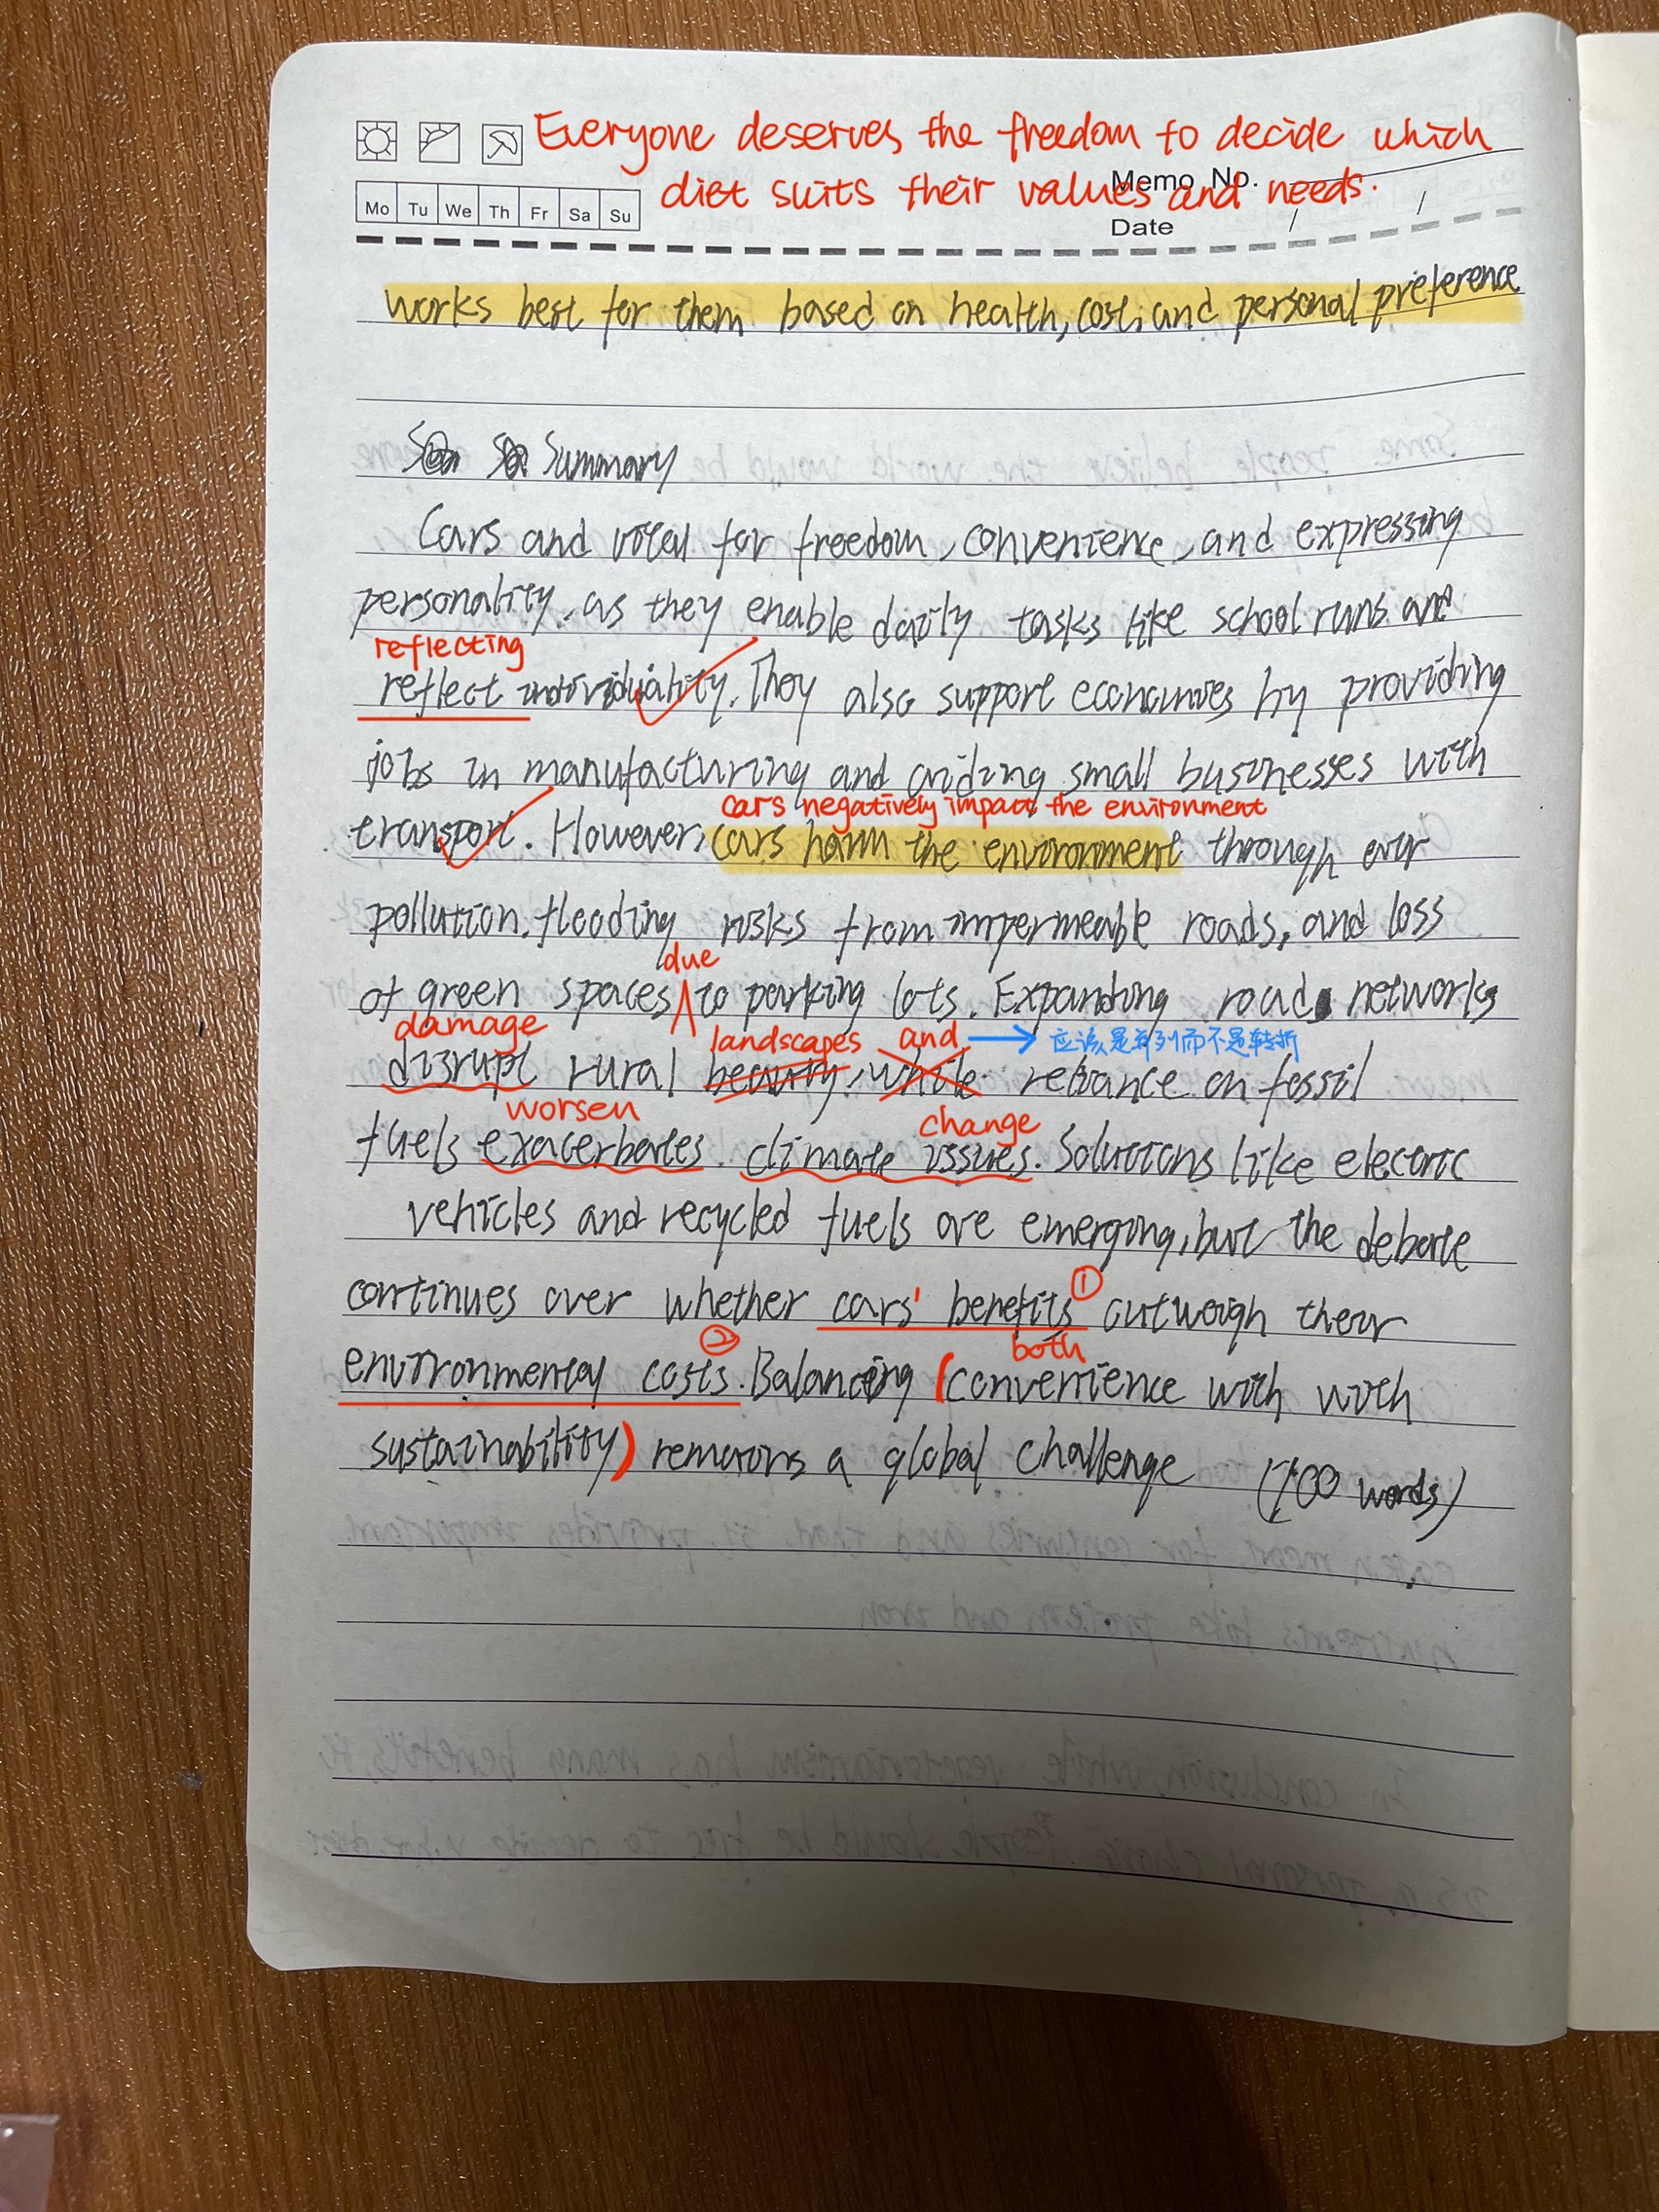 Everyone deserves the freedom to decide which
diet suits their values and needs.
Memo No.
Mo Tu We Th Fr Sa Su
Date / /
works best for them based on health, cost, and personal preference
Summary
Cars and for freedom, convenience, and expressing
personality, as they enable daily tasks like school runs and
reflecting
reflect individuality. They also support economies by providing
jobs in manufacturing and aiding small businesses with
cars negatively impact the environment
transport. However, cars harm the environment through air
pollution, flooding risks from impermeable roads, and loss
due
of green spaces to parking lots. Expanding road networks
damage landscapes and → 应该是并列而不是转折
disrupt rural beauty, while reliance on fossil
worsen change
fuels exacerbates climate issues. Solutions like electric
vehicles and recycled fuels are emerging, but the debate
continues over whether cars' benefits ① outweigh their
② both
environmental costs. Balancing (convenience with with
sustainability) remains a global challenge (100 words)